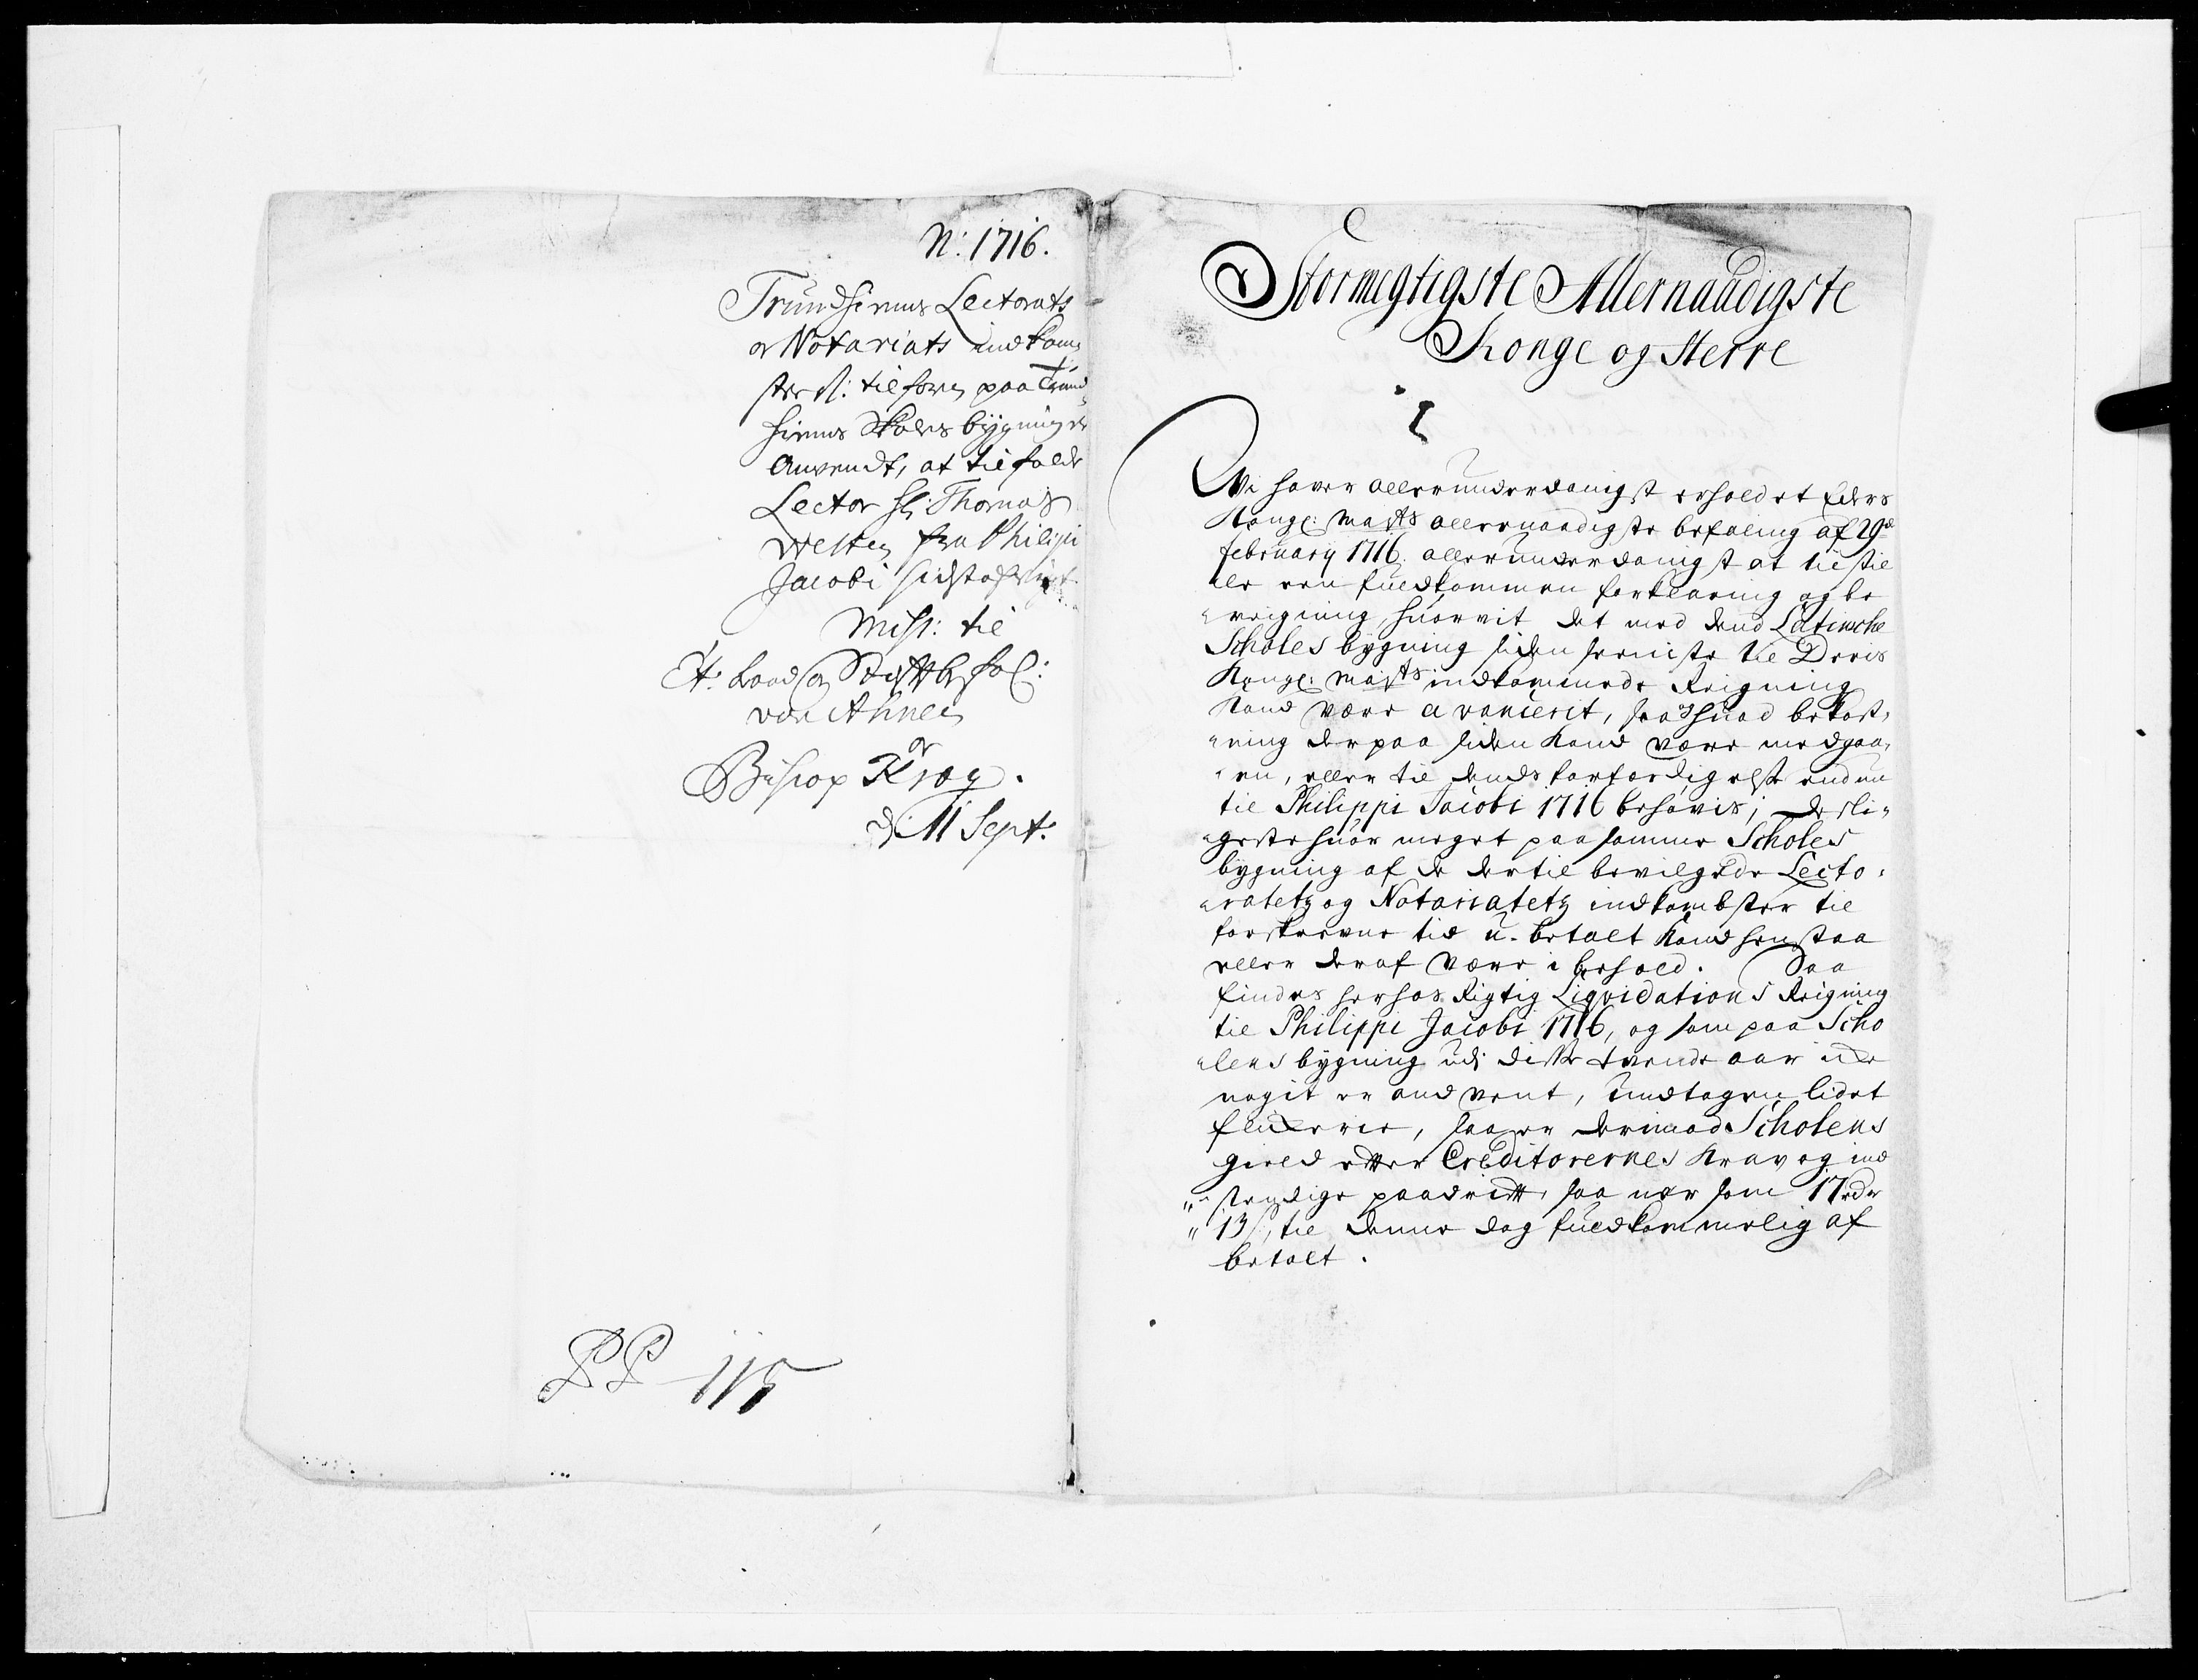 N: 1716.
Trundhiems Lectorats
og Notariats indkom¬
ster s: tilforn paa Trund
hiems Skoles bygning er
Anvendt, at tilfalde
Lector Hr. Thomas
Westen fra Philipi
Jacobi sidst
Miss: til
Et. Raad og Stiftbefal:
von Ahnen
og
Biscop Krog.
d: 11 Sept.
PP 115
Stormegtigste Allernaadigste
Konge og Herre
Vi hafver allerunderdanigst erholdet Eders
Kongl: Mayts allernaadigste befaling af 29de
february 1716. allerunderdanigst at tilstil
lle een fuldkommen forklaring og be
reigning, huorvit det med dend Latinsche
Scholes bygning siden seeniste til Deris
Kongl: Mayts indkommede Reigning
kand være avancerit, saa og huad bekost,
ning derpaa siden kand være medgaa,
en, eller til dends forferdigelse endnu
til Philippi Jacobi 1716 behøvis; desli¬
geste huor meget paa samme Scholes
bygning af de dertil bevilgede Lecto¬
ratets og Notariatets indkombster til
forskrevne tid u-betalt kand henstaa
eller deraf være i behold. Saa
findes herhos Rigtig Liqvidations Reigning
til Philippi Jacobi 1716, og som paa Scho
lens bygning udj disse tvende aar icke
nogit er andvent, undtagen lidet
flickerie, saa er derimod Scholens
gield efter Creditorernes Krav og ind
stendige paadrift, saa nær som 17 rdr
13 s, til denne dag fuldkommelig af
betalt.